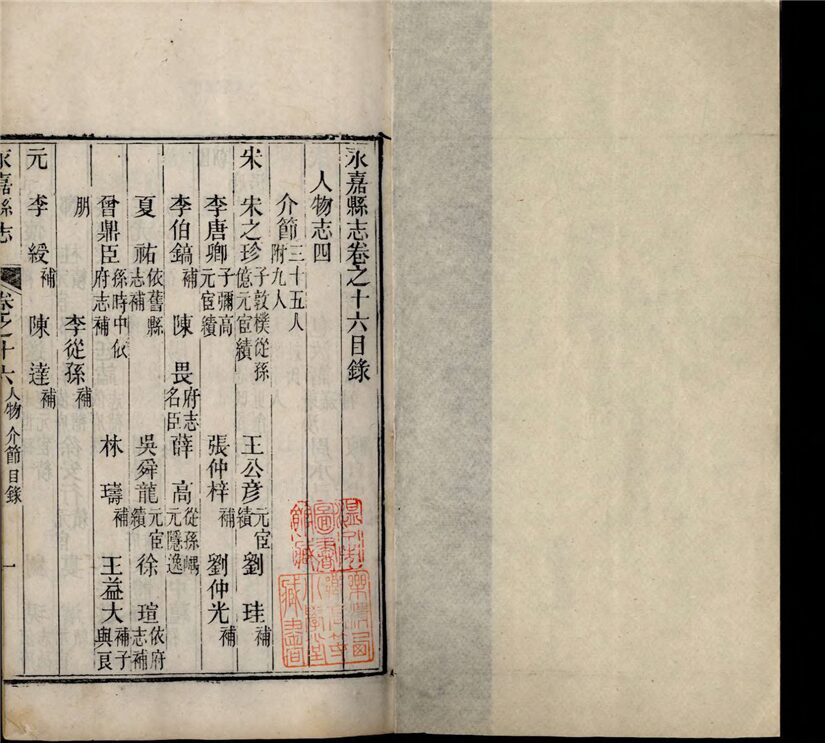 永嘉縣志卷之十六目錄
人物志四
介節三十五人附九人
宋 宋之珍子敦樸從孫億元宦績 王公彥元宦績 劉珪補
李唐卿子彌高元宦績 張仲梓補 劉仲光補
李伯鎬補 陳畏府志名臣 薛高從孫嵎元隱逸
夏祐依舊縣志補 吳舜龍元宦績 徐瑄依府志補
曾鼎臣孫時中依府志補 林璹補 王益大補子與良
朋 李從孫補
元 李綬補 陳達補
永嘉縣志 卷之十六 人物 介節目錄 一